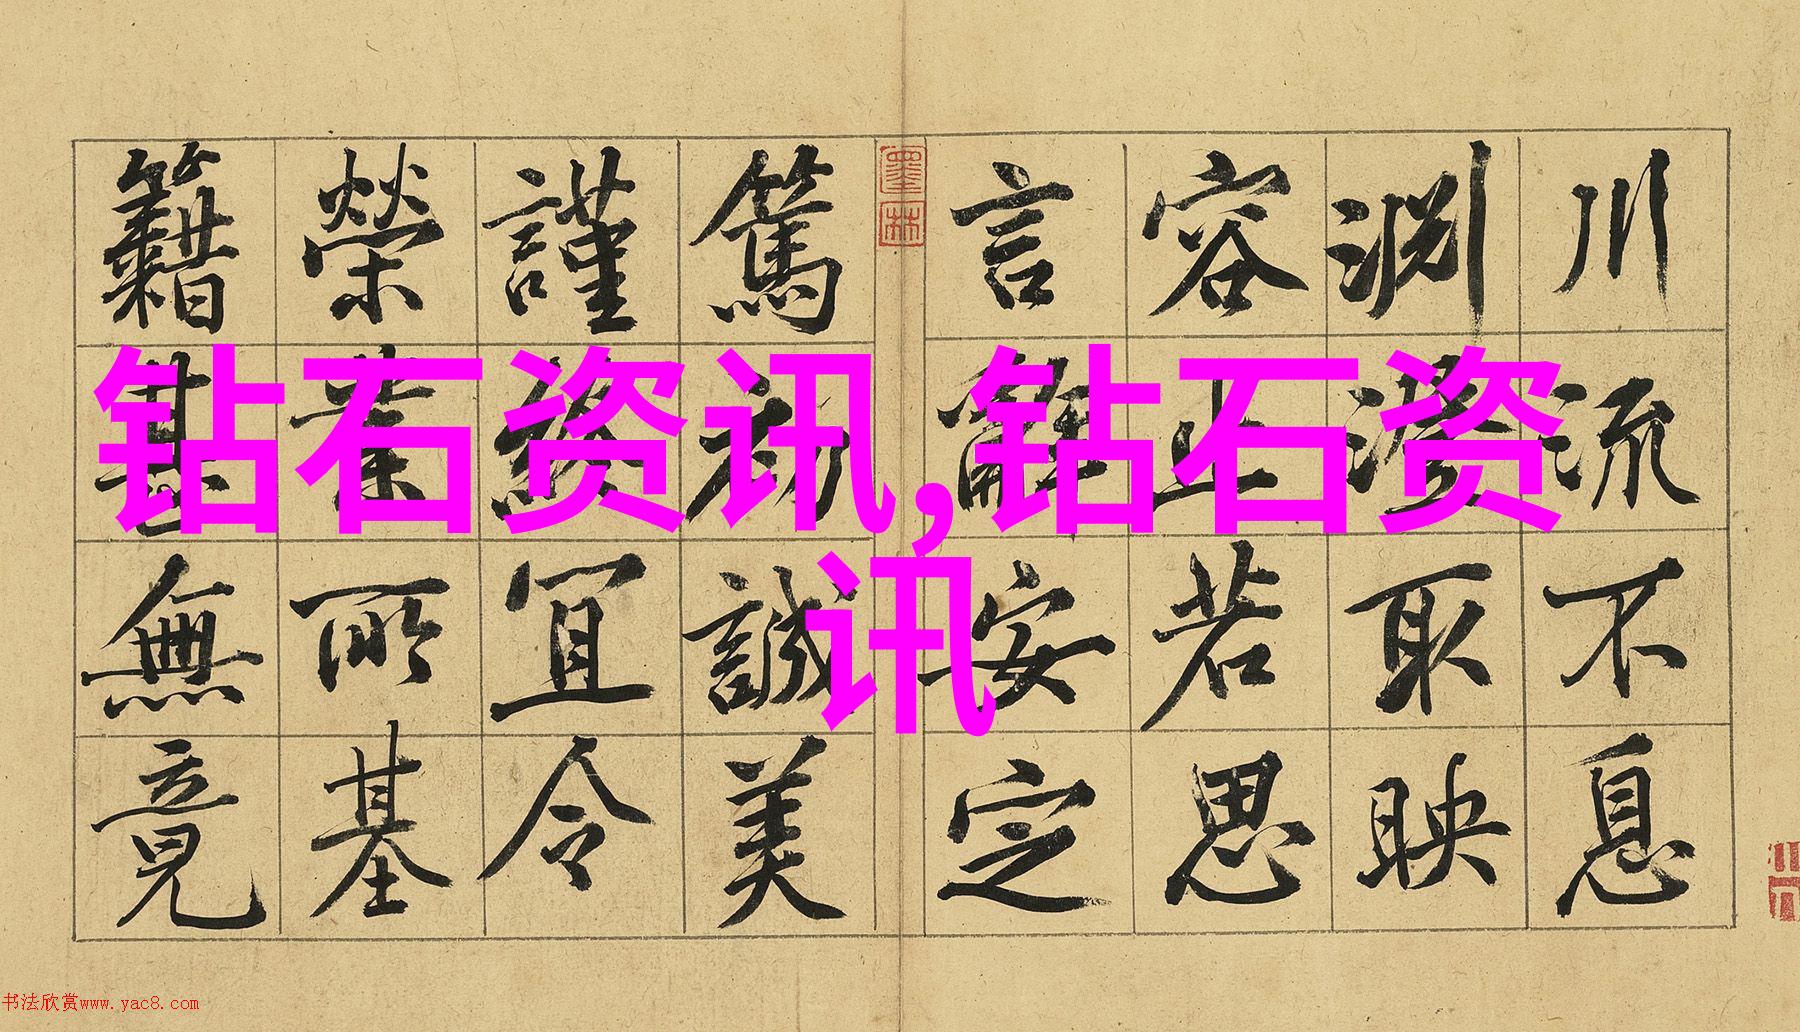 川流不息
淵澄取映
容止若思
言辭安定
墨林
篤初誠美
謹終宜令
榮業所基
籍甚無竟
钻石资讯,钻石资
讯
书法欣赏www.yac8.com